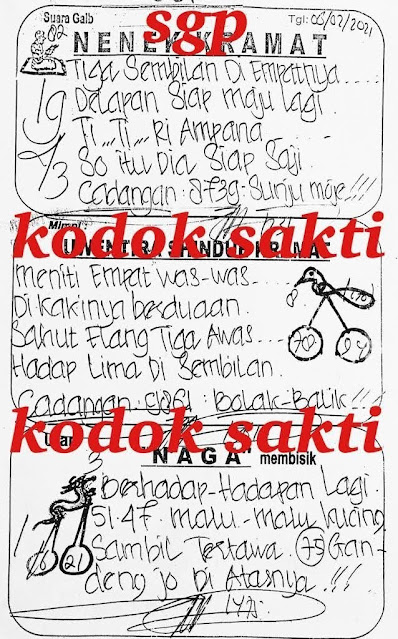 Suara Galb
Tgl: 06/02/2021
sgp
82
NENEK KRAMAT
Tiga Sembilan Di Empatnya....
19
Delapan Siap maju Lagi.
Ti...Ti...Ri Ampana
So itu Dia Siap Saji.
Cadangan: 2739-Sunju moje!!!
Mimpi:
kodok sakti
KRAMAT
Meniti Empat was-was....
Di kakinya berduaan.
8
Sahut Elang Tiga Awas....
70 24
Hadap Lima Di Sembilan.
Cadangan: 5861: Bolak-Balik!!!
kodok sakti
3
NAGA" membisik
Berhadap-Hadapan Lagi.
51.47. malu-malu kucing
Sambil Tertawa. 75 Gan-
21
deng jo Di Atasnya.!!!